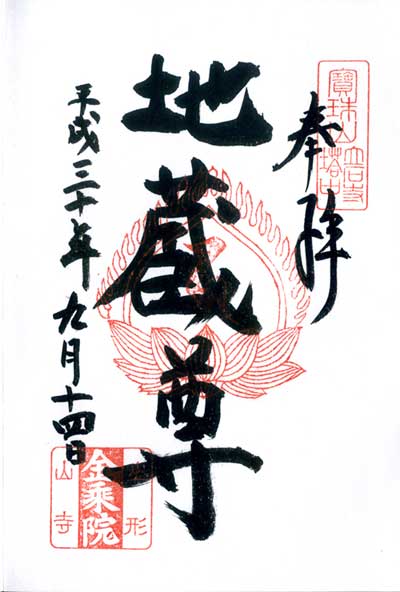 奉拝
寳珠山立石寺塔中
地蔵尊
平成三十年九月十四日
山形
金乗院
山寺